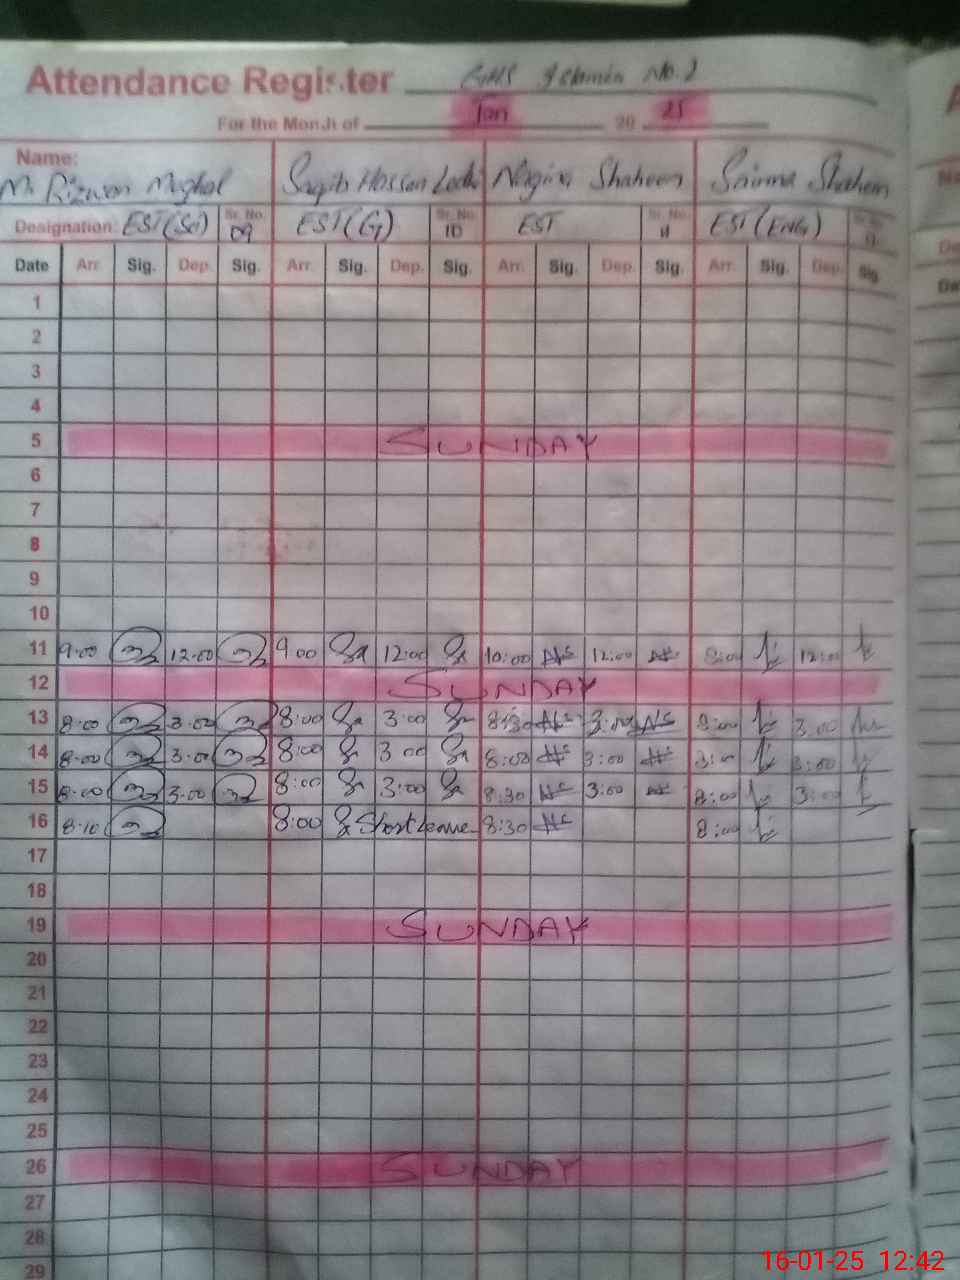 Attendance Register GHS Jehmin No.2
For the Month of Jan 20 25
Name:
M. Rizwan Mughal Saqib Hassan Lodhi Nagina Shaheen Saima Shaheen
Designation: EST(Sci) Sr. No. 09 EST(G) Sr. No. 10 EST Sr. No. 11 EST(ENG)
Date Arr. Sig. Dep. Sig. Arr. Sig. Dep. Sig. Arr. Sig. Dep. Sig. Arr. Sig. Dep. Sig.
1
2
3
4
5 SUNDAY
6
7
8
9
10
11 9.00 12.00 9.00 12:00 10:00 12:00 8:00 12:00
12 SUNDAY
13 8.00 3.00 8:00 3:00 8:30 3:00 8:00 3.00
14 8.00 3.00 8:00 3 00 8:00 3:00 8:00 3:00
15 8.00 3.00 8:00 3:00 8:30 3:00 8:00 3:00
16 8.10 8:00 Short Leave 8:30 8:00
17
18
19 SUNDAY
20
21
22
23
24
25
26 SUNDAY
27
28
29
16-01-25 12:42